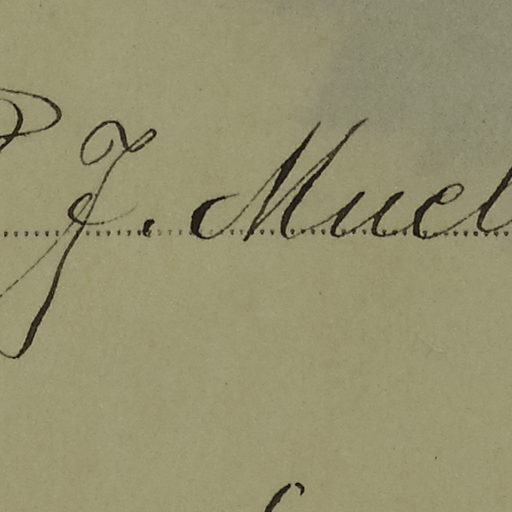 J. Muel